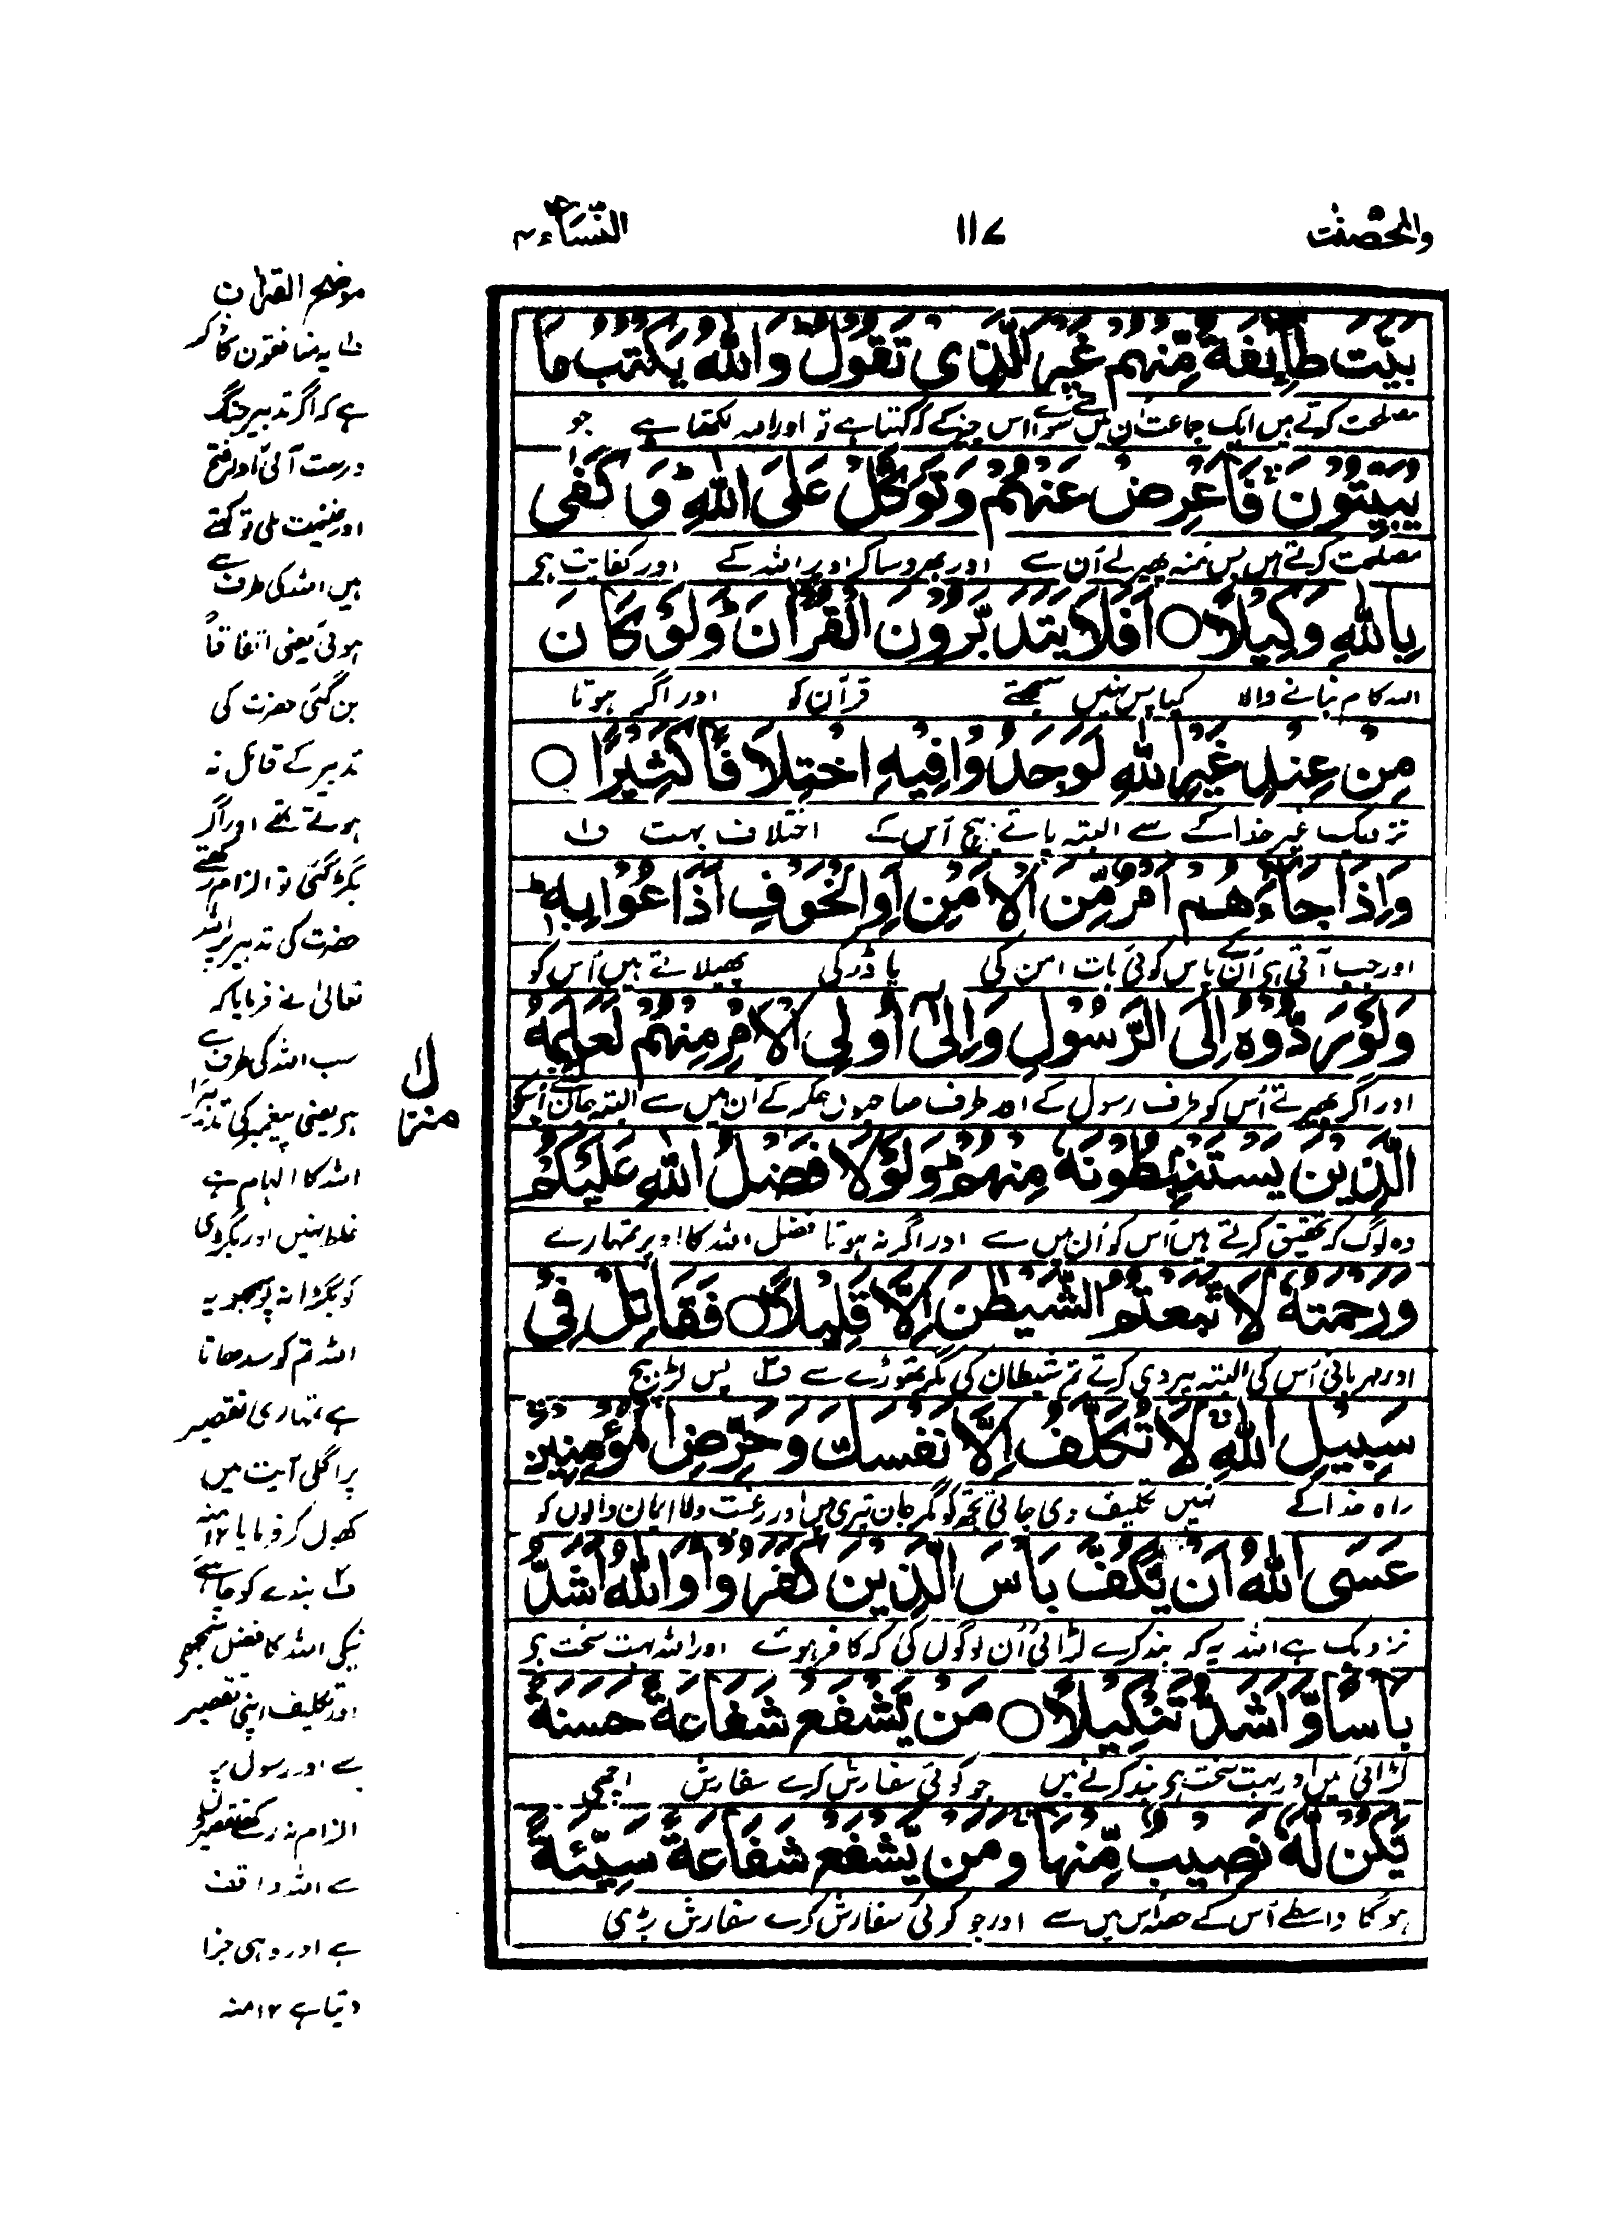 والمحصنت
۱۱۷
النساء ۴
بَيَّتَ طَآئِفَةٌ مِّنْهُمْ غَيْرَ الَّذِىْ تَقُوْلُ ؕ وَاللّٰهُ يَكْتُبُ مَا
مصلحت کرتے ہیں ایک جماعت ان میں سے سوا اس چیز کے کہ کہتا ہے تو اور اللہ لکھتا ہے جو
يُبَيِّتُوْنَ ۚ فَاَعْرِضْ عَنْهُمْ وَتَوَكَّلْ عَلَى اللّٰهِ ؕ وَكَفٰى
مصلحت کرتے ہیں پس منہ پھیر لے ان سے اور بھروسا کر اوپر اللہ کے اور کفایت ہی
بِاللّٰهِ وَكِيْلًا ○ اَفَلَا يَتَدَبَّرُوْنَ الْقُرْاٰنَ ؕ وَلَوْ كَانَ
اللہ کام بنانے والا کیا پس نہیں سمجھتے قرآن کو اور اگر ہوتا
مِنْ عِنْدِ غَيْرِ اللّٰهِ لَوَجَدُوْا فِيْهِ اخْتِلَافًا كَثِيْرًا ○
نزدیک غیر خدا کے سے البتہ پاتے بیچ اس کے اختلاف بہت ف۱
وَاِذَا جَآءَهُمْ اَمْرٌ مِّنَ الْاَمْنِ اَوِ الْخَوْفِ اَذَاعُوْا بِهٖ ؕ
اور جب آتی ہی ان کے پاس کوئی بات امن کی یا ڈر کی پھیلاتے ہیں اس کو
وَلَوْ رَدُّوْهُ اِلَى الرَّسُوْلِ وَاِلٰٓى اُولِى الْاَمْرِ مِنْهُمْ لَعَلِمَهُ
اور اگر پھیرتے اس کو طرف رسول کے اور طرف صاحبوں حکم کے ان میں سے البتہ جانتے اسکو
الَّذِيْنَ يَسْتَنْۢبِطُوْنَهٗ مِنْهُمْ ؕ وَلَوْلَا فَضْلُ اللّٰهِ عَلَيْكُمْ
وہ لوگ کہ تحقیق کرتے ہیں اس کو ان میں سے اور اگر نہ ہوتا فضل اللہ کا اوپر تمہارے
وَرَحْمَتُهٗ لَاتَّبَعْتُمُ الشَّيْطٰنَ اِلَّا قَلِيْلًا ○ فَقَاتِلْ فِىْ
اور مہربانی اس کی البتہ پیروی کرتے تم شیطان کی مگر تھوڑے سے ف۲ پس لڑ بیچ
سَبِيْلِ اللّٰهِ ۚ لَا تُكَلَّفُ اِلَّا نَفْسَكَ وَحَرِّضِ الْمُؤْمِنِيْنَ ۚ
راہ خدا کے نہیں تکلیف دی جاتی تجھ کو مگر جان تیری میں اور رغبت دلا ایمان والوں کو
عَسَى اللّٰهُ اَنْ يَّكُفَّ بَاْسَ الَّذِيْنَ كَفَرُوْا ؕ وَاللّٰهُ اَشَدُّ
نزدیک ہے اللہ یہ کہ بند کرے لڑائی ان لوگوں کی کہ کافر ہوئے اور اللہ بہت سخت ہی
بَاْسًا وَّاَشَدُّ تَنْكِيْلًا ○ مَنْ يَّشْفَعْ شَفَاعَةً حَسَنَةً
لڑائی میں اور بہت سخت ہی بند کرنے میں جو کوئی سفارش کرے سفارش اچھی
يَّكُنْ لَّهٗ نَصِيْبٌ مِّنْهَا ۚ وَمَنْ يَّشْفَعْ شَفَاعَةً سَيِّئَةً
ہوگا واسطے اس کے حصہ اس میں سے اور جو کوئی سفارش کرے سفارش بری
منزل
موضح القرآن
ف۱ یہ منافقوں کا ذکر
ہے کہ اگر تدبیر جنگ
درست آئی اور فتح
اور غنیمت ملی تو کہتے
ہیں اللہ کی طرف سے
ہوئی یعنی اتفاقاً
بن گئی حضرت کی
تدبیر کے قائل نہ
ہوتے تھے اور اگر
بگڑ گئی تو الزام رکھتے
حضرت کی تدبیر پر اللہ
تعالیٰ نے فرمایا کہ
سب اللہ کی طرف سے
ہی یعنی پیغمبر کی تدبیر
اللہ کا الہام ہے
غلط نہیں اور بگڑی
کو بگڑا نہ بوجھو یہ
اللہ تم کو سدھاتا
ہے تمہاری تقصیر
پر اگلی آیت میں
کھول کر فرمایا ۱۲ منہ
ف۲ بندے کو چاہئے
نیکی اللہ کا فضل سمجھے
اور تکلیف اپنی تقصیر
سے اور رسول پر
الزام نہ رکھے تقصیروں
سے اللہ واقف
ہے اور وہی جزا
دیتا ہے ۱۲ منہ